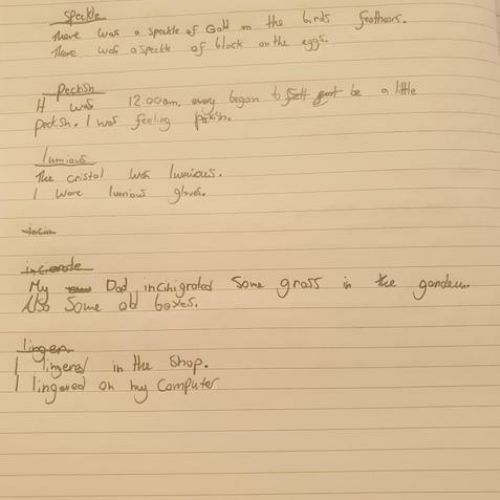 Speckle
There was a speckle of Gold on the birds feathers.
There was a speckle of black on the eggs.
Peckish
It was 12.00am, began to be a little
peckish. I was feeling pekish.
lumious
The cristal was lumious.
I wore lumious gloves.
My Dad incinigrated some grass in the garden.
Also some old boxes.
linger
I lingered in the Shop.
I lingered on my Computer